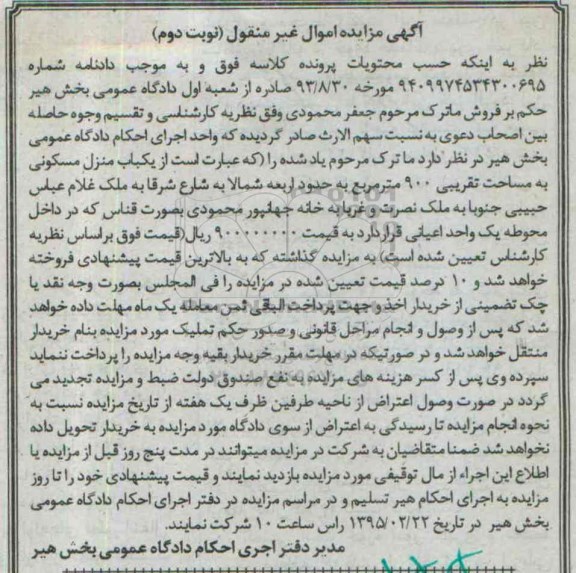 آگهی مزایده اموال غیر منقول (نوبت دوم)
نظر به اینکه حسب محتویات پرونده کلاسه فوق و به موجب دادنامه شماره
۹۴۰۹۹۷۴۵۳۴۳۰۰۶۹۵ مورخه ۹۳/۸/۳۰ صادره از شعبه اول دادگاه عمومی بخش هیر
حکم بر فروش ماترک مرحوم جعفر محمودی وفق نظریه کارشناسی و تقسیم وجوه حاصله
بین اصحاب دعوی به نسبت سهم الارث صادر گردیده که واحد اجرای احکام دادگاه عمومی
بخش هیر در نظر دارد ما ترک مرحوم یاد شده را (که عبارت است از یکباب منزل مسکونی
به مساحت تقریبی ۹۰۰ مترمربع به حدود اربعه شمالا به شارع شرقا به ملک غلام عباس
حبیبی جنوبا به ملک نصرت و غربا به خانه جهانپور محمودی بصورت قناس که در داخل
محوطه یک واحد اعیانی قرار دارد به قیمت ۹۰۰۰۰۰۰۰۰ ریال(قیمت فوق بر اساس نظریه
کارشناس تعیین شده است) به مزایده گذاشته که به بالاترین قیمت پیشنهادی فروخته
خواهد شد و ۱۰ درصد قیمت تعیین شده در مزایده را فی المجلس بصورت وجه نقد یا
چک تضمینی از خریدار اخذ و جهت پرداخت الباقی ثمن معامله یک ماه مهلت داده خواهد
شد که پس از وصول و انجام مراحل قانونی و صدور حکم تملیک مورد مزایده بنام خریدار
منتقل خواهد شد و در صورتیکه در مهلت مقرر خریدار بقیه وجه مزایده را پرداخت ننماید
سپرده وی پس از کسر هزینه های مزایده به نفع صندوق دولت ضبط و مزایده تجدید می
گردد در صورت وصول اعتراض از ناحیه طرفین ظرف یک هفته از تاریخ مزایده نسبت به
نحوه انجام مزایده تا رسیدگی به اعتراض از سوی دادگاه مورد مزایده به خریدار تحویل داده
نخواهد شد ضمنا متقاضیان به شرکت در مزایده میتوانند در مدت پنج روز قبل از مزایده با
اطلاع این اجراء از مال توقیفی مورد مزایده بازدید نمایند و قیمت پیشنهادی خود را تا روز
مزایده به اجرای احکام هیر تسلیم و در مراسم مزایده در دفتر اجرای احکام دادگاه عمومی
بخش هیر در تاریخ ۱۳۹۵/۰۲/۲۲ راس ساعت ۱۰ شرکت نمایند.
مدیر دفتر اجری احکام دادگاه عمومی بخش هیر